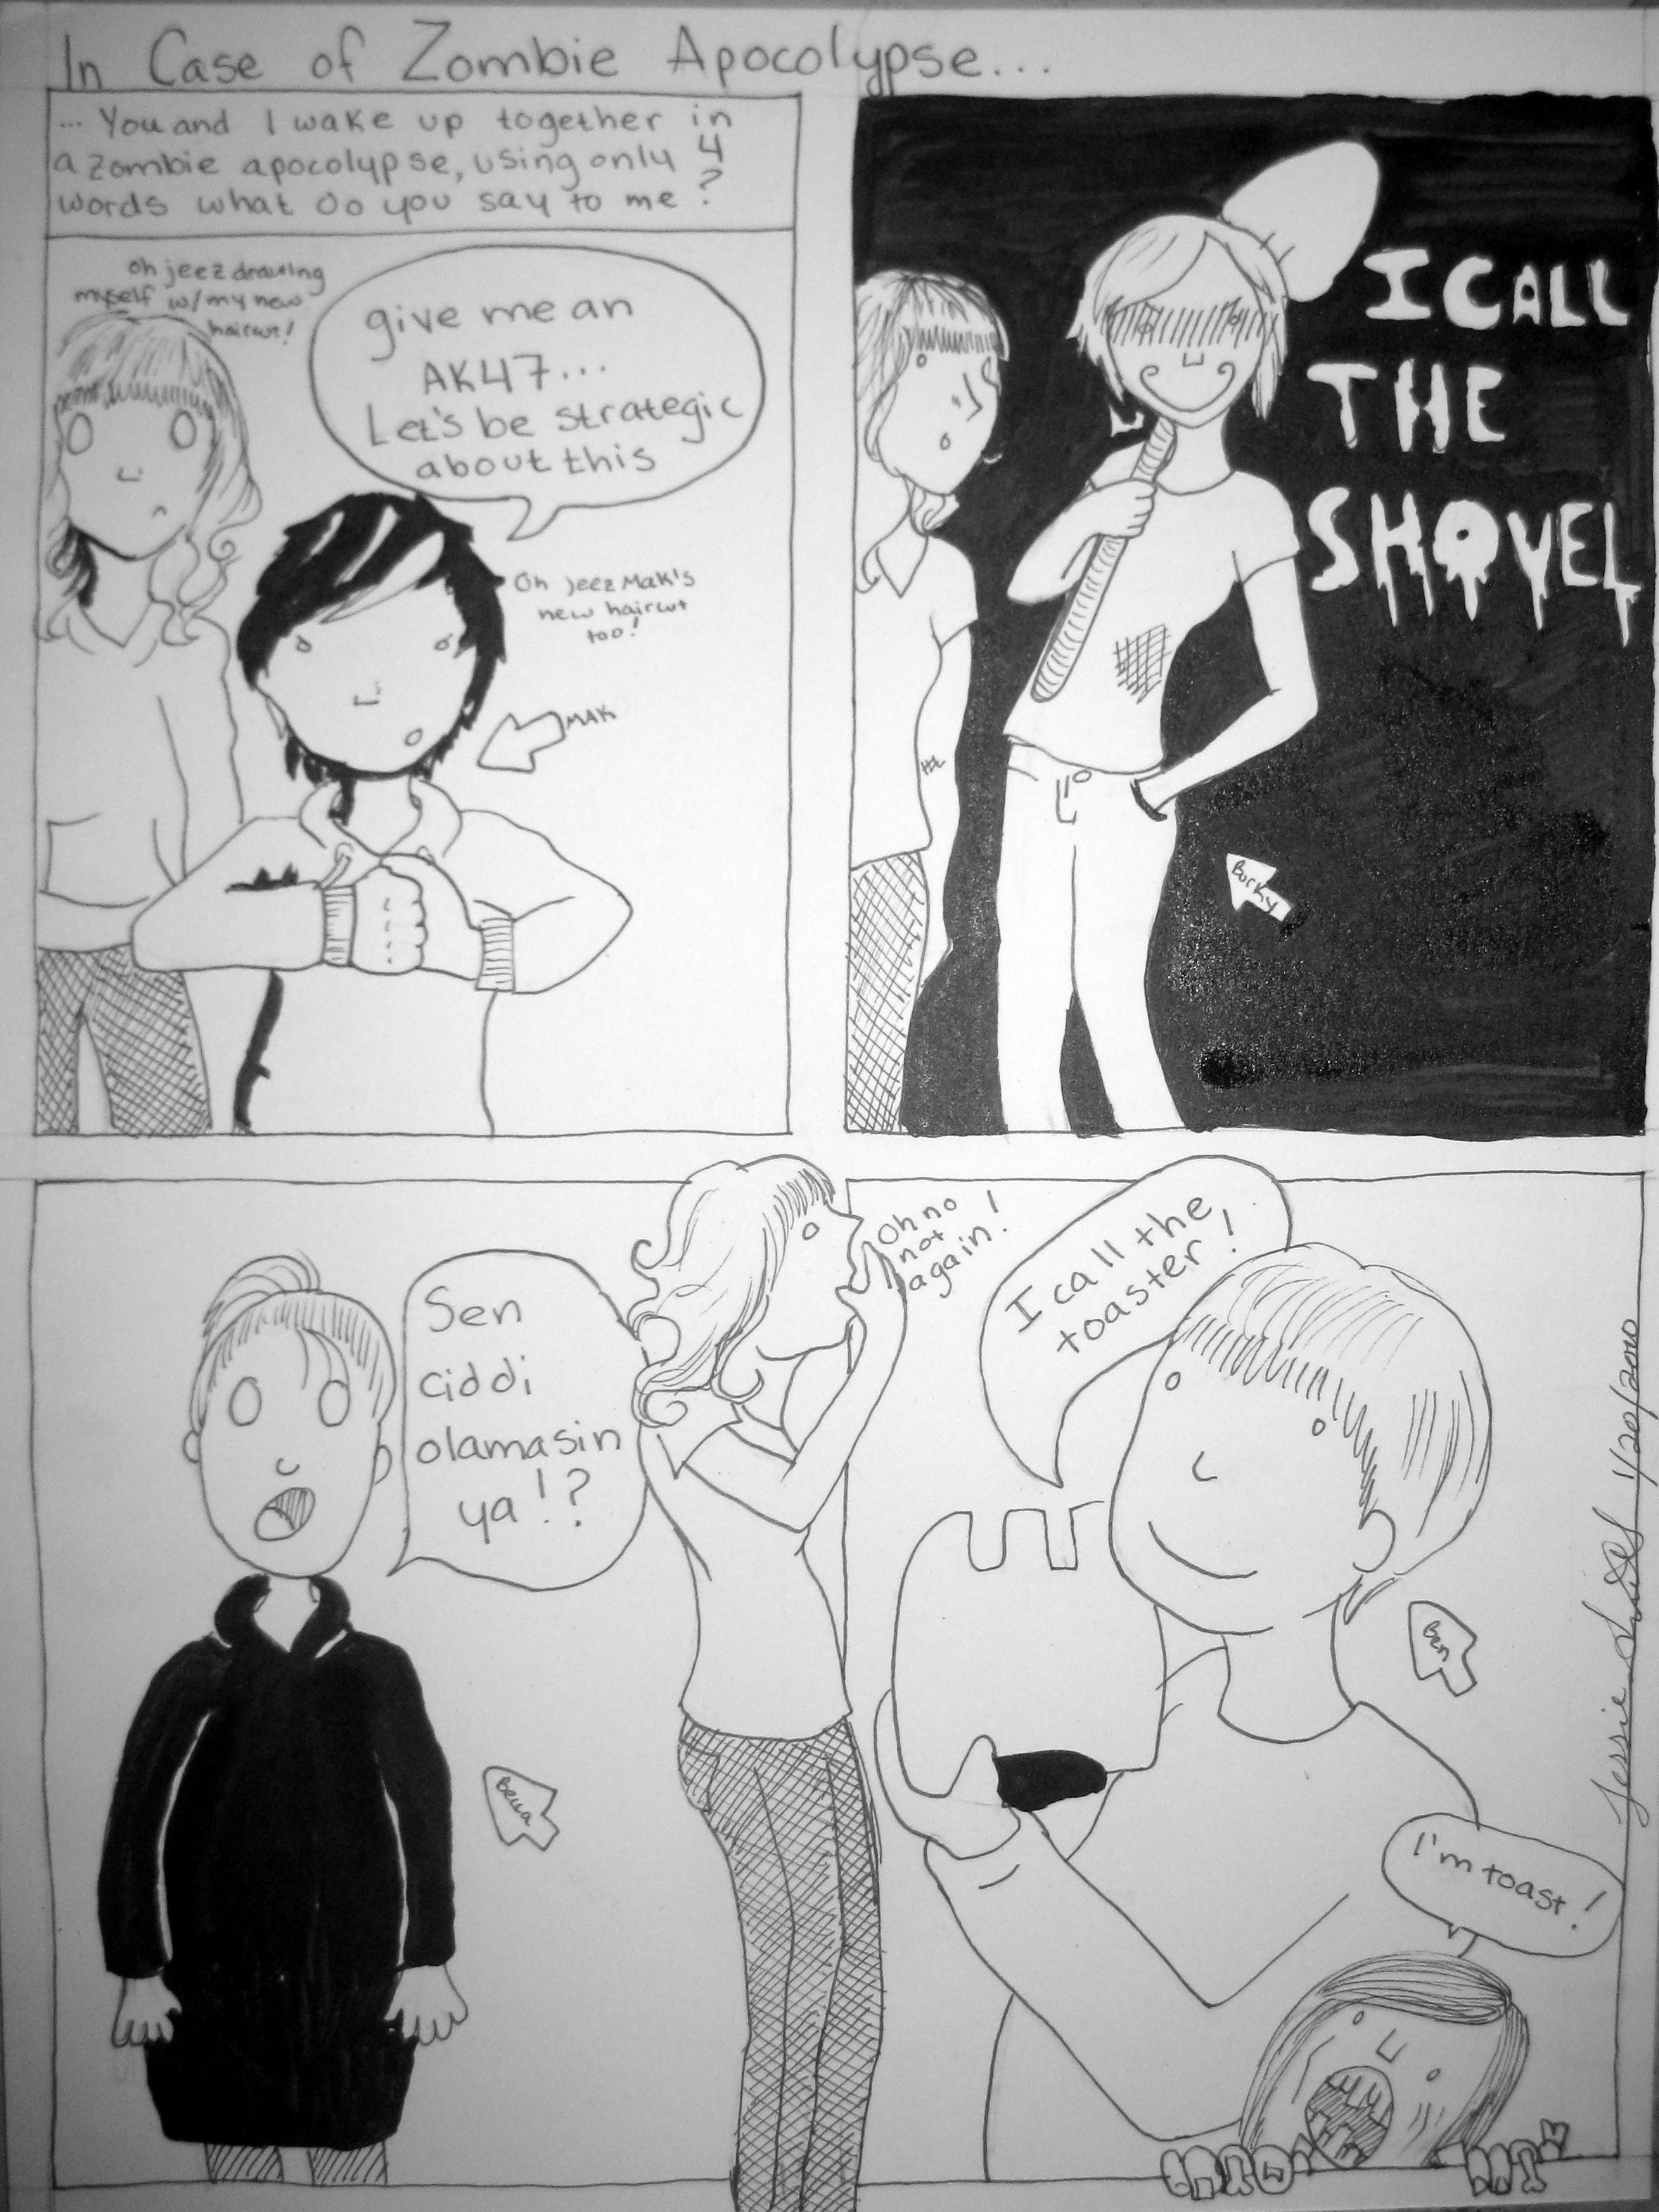 In Case of Zombie Apocolypse...
... You and I wake up together in
a zombie apocolypse, using only 4
words what do you say to me?
oh jeez drawing
myself w/my new
haircut!
give me an
AK47...
Let's be strategic
about this
Oh jeez Mak's
new haircut
too!
MAK
I CALL
THE
SHOVEL
Borky
Sen
ciddi
olamasin
ya!?
Oh no
not
again!
I call the
toaster!
Ben
I'm toast!
Jessie
1/20/2010